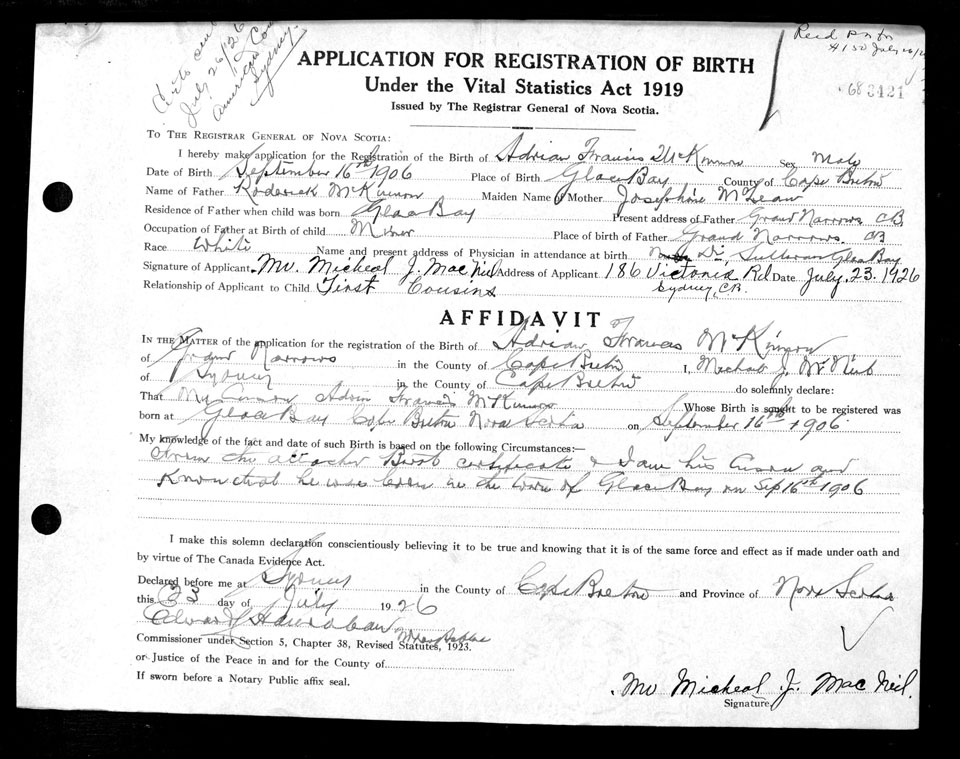 Certs sent
July 26/26
American Con
Sydney.
July 26/26
APPLICATION FOR REGISTRATION OF BIRTH
Under the Vital Statistics Act 1919
Issued by The Registrar General of Nova Scotia.
TO THE REGISTRAR GENERAL OF NOVA SCOTIA:
I hereby make application for the Registration of the Birth of Adrian Francis McKinnon Sex Male
Date of Birth September 16th 1906 Place of Birth Glace Bay County of Cape Breton
Name of Father Roderick McKinnon Maiden Name of Mother Josephine McLean
Residence of Father when child was born Glace Bay Present address of Father Grand Narrows CB
Occupation of Father at Birth of child Miner Place of birth of Father Grand Narrows CB
Race White Name and present address of Physician in attendance at birth Dr. Sullivan Glace Bay
Signature of Applicant Mv. Micheal J. Mac Neil Address of Applicant 186 Victoria Rd. Date July. 23. 1926
Sydney, CB.
Relationship of Applicant to Child First Cousins
AFFIDAVIT
IN THE MATTER of the application for the registration of the Birth of Adrian Francis McKinnon
of Grand Narrows in the County of Cape Breton I, Michael J. McNeil
of Sydney in the County of Cape Breton do solemnly declare:
That My Cousin Adrin Francis McKinnon Whose Birth is sought to be registered was
born at Glace Bay Cape Breton Nova Scotia on September 16th 1906.
My knowledge of the fact and date of such Birth is based on the following Circumstances:—
From the attached Birth certificate & I am his Cousin and
Know that he was born in the town of Glace Bay on Sep 16th 1906
I make this solemn declaration conscientiously believing it to be true and knowing that it is of the same force and effect as if made under oath and
by virtue of The Canada Evidence Act.
Declared before me at Sydney in the County of Cape Breton and Province of Nova Scotia
this 23 day of July 1926
Commissioner under Section 5, Chapter 38, Revised Statutes, 1923.
or Justice of the Peace in and for the County of
If sworn before a Notary Public affix seal.
Mv Micheal J. Mac Neil.
Signature